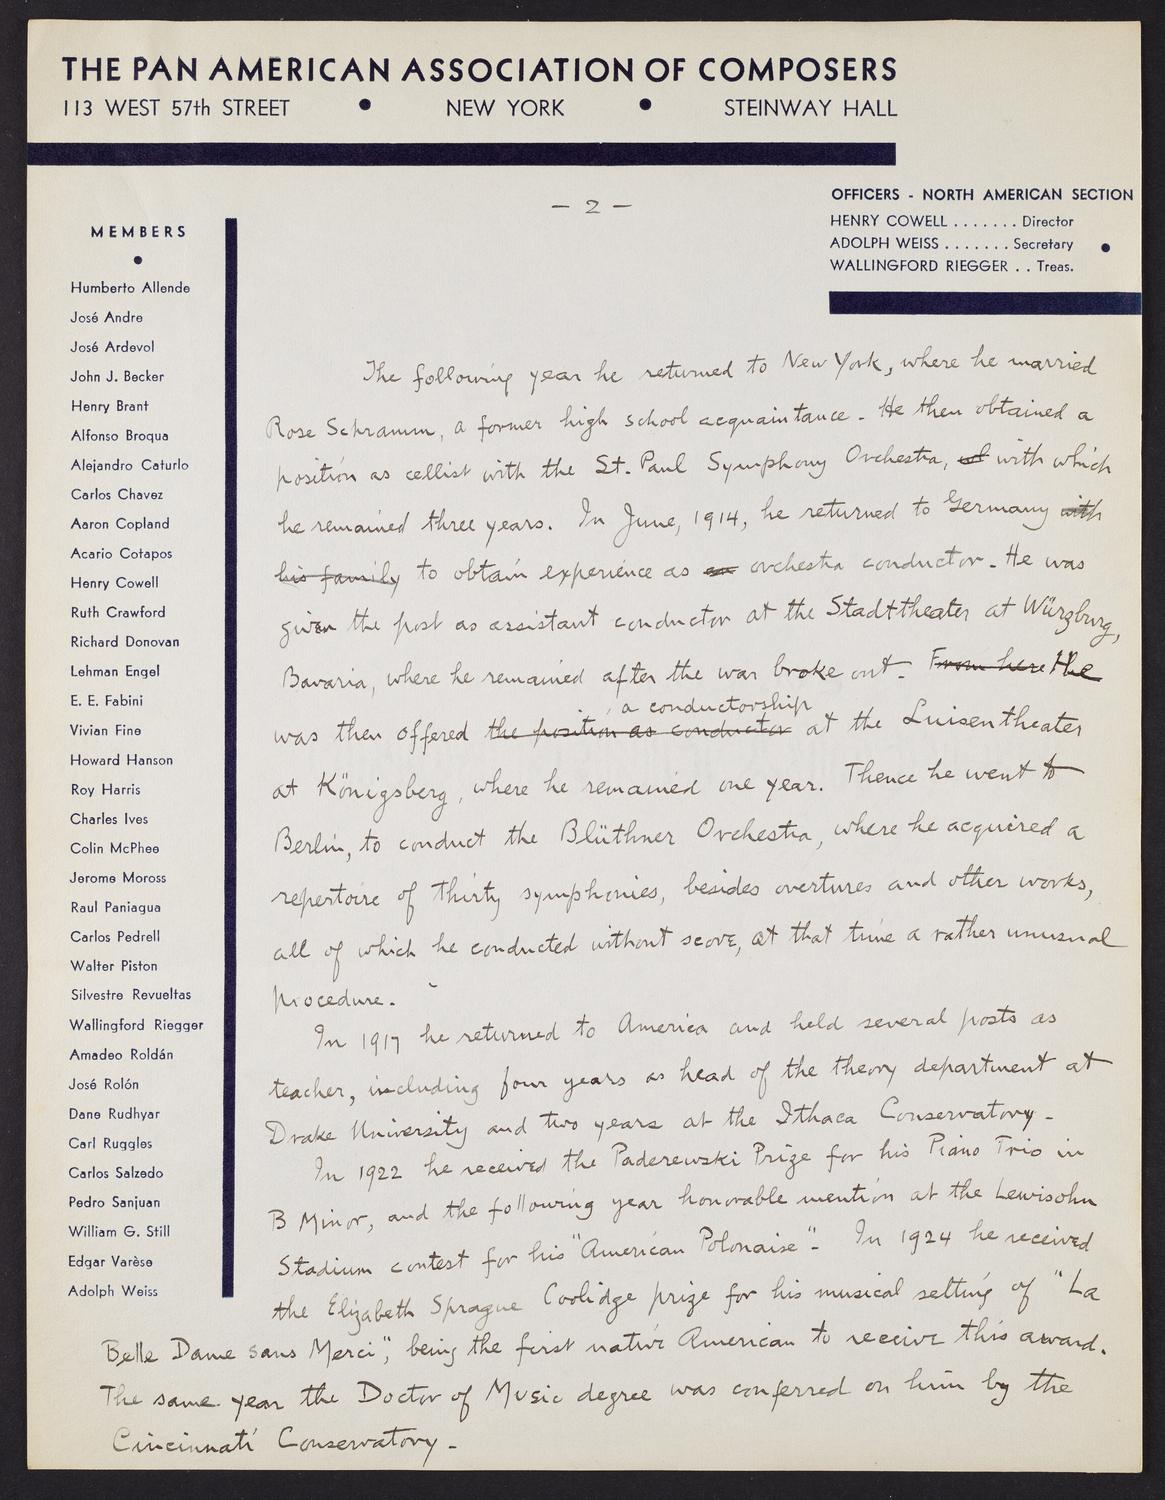 THE PAN AMERICAN ASSOCIATION OF COMPOSERS
113 WEST 57th STREET • NEW YORK • STEINWAY HALL
OFFICERS - NORTH AMERICAN SECTION
HENRY COWELL . . . . . . . Director
ADOLPH WEISS . . . . . . . Secretary •
WALLINGFORD RIEGGER . . Treas.
MEMBERS
•
Humberto Allende
José Andre
José Ardevol
John J. Becker
Henry Brant
Alfonso Broqua
Alejandro Caturlo
Carlos Chavez
Aaron Copland
Acario Cotapos
Henry Cowell
Ruth Crawford
Richard Donovan
Lehman Engel
E. E. Fabini
Vivian Fine
Howard Hanson
Roy Harris
Charles Ives
Colin McPhee
Jerome Moross
Raul Paniagua
Carlos Pedrell
Walter Piston
Silvestre Revueltas
Wallingford Riegger
Amadeo Roldán
José Rolón
Dane Rudhyar
Carl Ruggles
Carlos Salzedo
Pedro Sanjuan
William G. Still
Edgar Varèse
Adolph Weiss
– 2 –
The following year he returned to New York, where he married
Rose Schramm, a former high school acquaintance. He then obtained a
position as cellist with the St. Paul Symphony Orchestra, with which
he remained three years. In June, 1914, he returned to Germany with
his family to obtain experience as an orchestra conductor. He was
given the post as assistant conductor at the Stadttheater at Würzburg,
Bavaria, where he remained after the war broke out. From here He
a conductorship
was then offered the position as conductor at the Luisentheater
at Königsberg, where he remained one year. Thence he went to
Berlin, to conduct the Blüthner Orchestra, where he acquired a
repertoire of thirty symphonies, besides overtures and other works,
all of which he conducted without score, at that time a rather unusual
procedure.
In 1917 he returned to America and held several posts as
teacher, including four years as head of the theory department at
Drake University and two years at the Ithaca Conservatory.
In 1922 he received the Paderewski Prize for his Piano Trio in
B Minor, and the following year honorable mention at the Lewisohn
Stadium contest for his "American Polonaise". In 1924 he received
the Elizabeth Sprague Coolidge prize for his musical setting of "La
Belle Dame sans Merci", being the first native American to receive this award.
The same year the Doctor of Music degree was conferred on him by the
Cincinnati Conservatory.